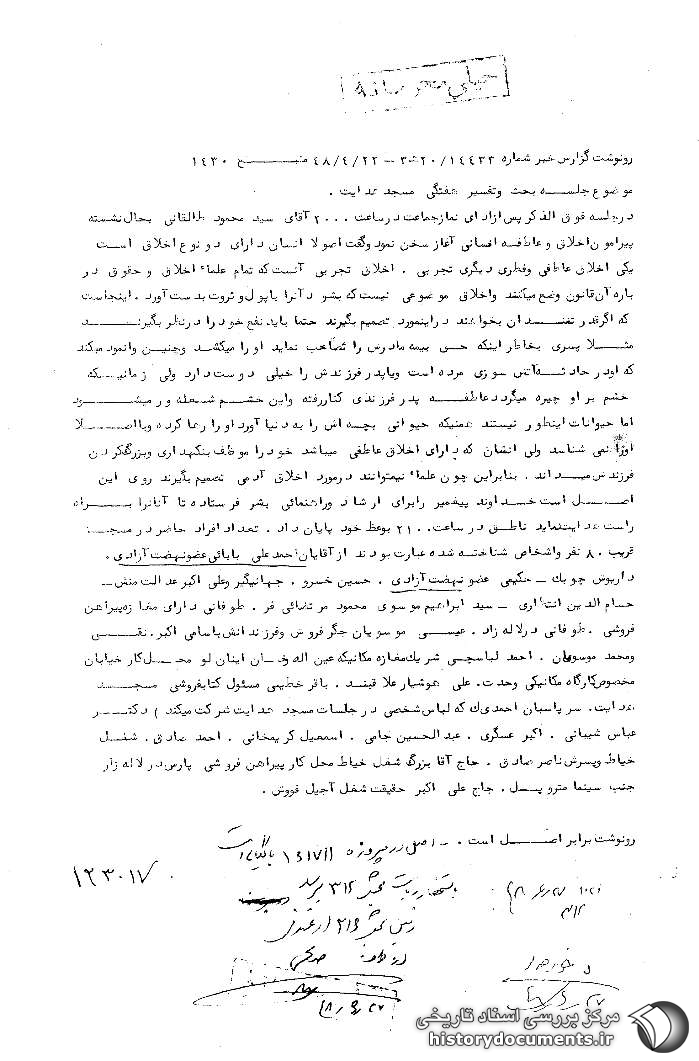 خیلی محرمانه
رونوشت گزارش خبر شماره ۲۰/۱۴۴۳۳ ه‍ ۳ - ۴۸/۴/۲۲ منبع ۱۴۳۰
موضوع جلسه بحث وتفسیر هفتگی مسجد هدایت .
درجلسه فوق الذکر پس ازادای نمازجماعت درساعت ۲۰۰۰ آقای سید محمود طالقانی بحال نشسته
پیرامون اخلاق و عاطفه انسانی آغاز سخن نمود وگفت اصولا انسان دارای دو نوع اخلاق است
یکی اخلاق عاطفی وفطری دیگری تجربی . اخلاق تجربی آنست که تمام علماء اخلاق و حقوق در
باره آن قانون وضع میکنند واخلاق موضوعی نیست که بشر د آنرا باپول وثروت بدست آورد . اینجاست
که اگرقدرتمندان بخواهند دراینمورد تصمیم بگیرند حتما باید نفع خود را درنظر بگیرند
مثلا پسری بخاطر اینکه حق بیمه مادرش را تصاحب نماید او را میکشد وچنین وانمود میکند
که اودر حادثه آتش سوزی مرده است ویاپدر فرزندش را خیلی دوست دارد ولی زمانیکه
خشم بر او چیره میگردد عاطفه پدر فرزندی کناررفته واین خشم شعله ور میشود
اما حیوانات اینطور نیستند همینکه حیوانی بچه اش را به دنیا آورد او را رها کرده ویااصلا
اورا نمی شناسد ولی انسان که دارای اخلاق عاطفی میباشد خود را موظف بنگهداری وبزرگ کردن
فرزندش میداند . بنابراین چون علماء نمیتوانند درمورد اخلاق آدمی تصمیم بگیرند روی این
اصل است خداوند پیغمبر رابرای ارشاد وراهنمائی بشر فرستاده تا آنانرا براه
راست هدایت نماید ناطق در ساعت ۲۱۰۰ بوعظ خود پایان داد . تعداد افراد حاضر در مسجد
قریب ۸۰ نفر واشخاص شناخته شده عبارت بودند از آقایان احمد علی بابائی عضو نهضت آزادی .
داریوش چوبک - حکیمی عضو نهضت آزادی . حسین خسرو . جهانگیر وعلی اکبر عدالت منش -
حسام الدین انتظاری - سید ابراهیم موسوی محمود مرتضائی فر . طوفانی دارای مغازه پیراهن
فروشی . طوفانی درلاله زار . عیسی موسویان جگر فروش وفرزندانش باسامی اکبر . نقی
ومحمد موسویان . احمد لباسچی شریک مغازه مکانیکه عین اله وخان اینان لو محل کار خیابان
مخصوص کارگاه مکانیکی وحدت . علی هوشیار علاقبند . باقر خطیبی مسئول کتابفروشی مسجد
هدایت . سر پاسبان احمدی که لباس شخصی در جلسات مسجد هدایت شرکت میکند ) دکتر
عباس شیبانی . اکبر عسگری . عبد الحسین جامی . اسمعیل کریمخانی . احمد صادق . شغل
خیاط وپسرش ناصر صادق . حاج آقا بزرگ شغل خیاط محل کار پیراهن فروشی پارس در لاله زار
جنب سینما متروپل . حاج علی اکبر حقیقت شغل آجیل فروش .
رونوشت برابر اصل است . - اصل در پرونده
۱۲۳۰۱۷
مرکز بررسی اسناد تاریخی
historydocuments.ir